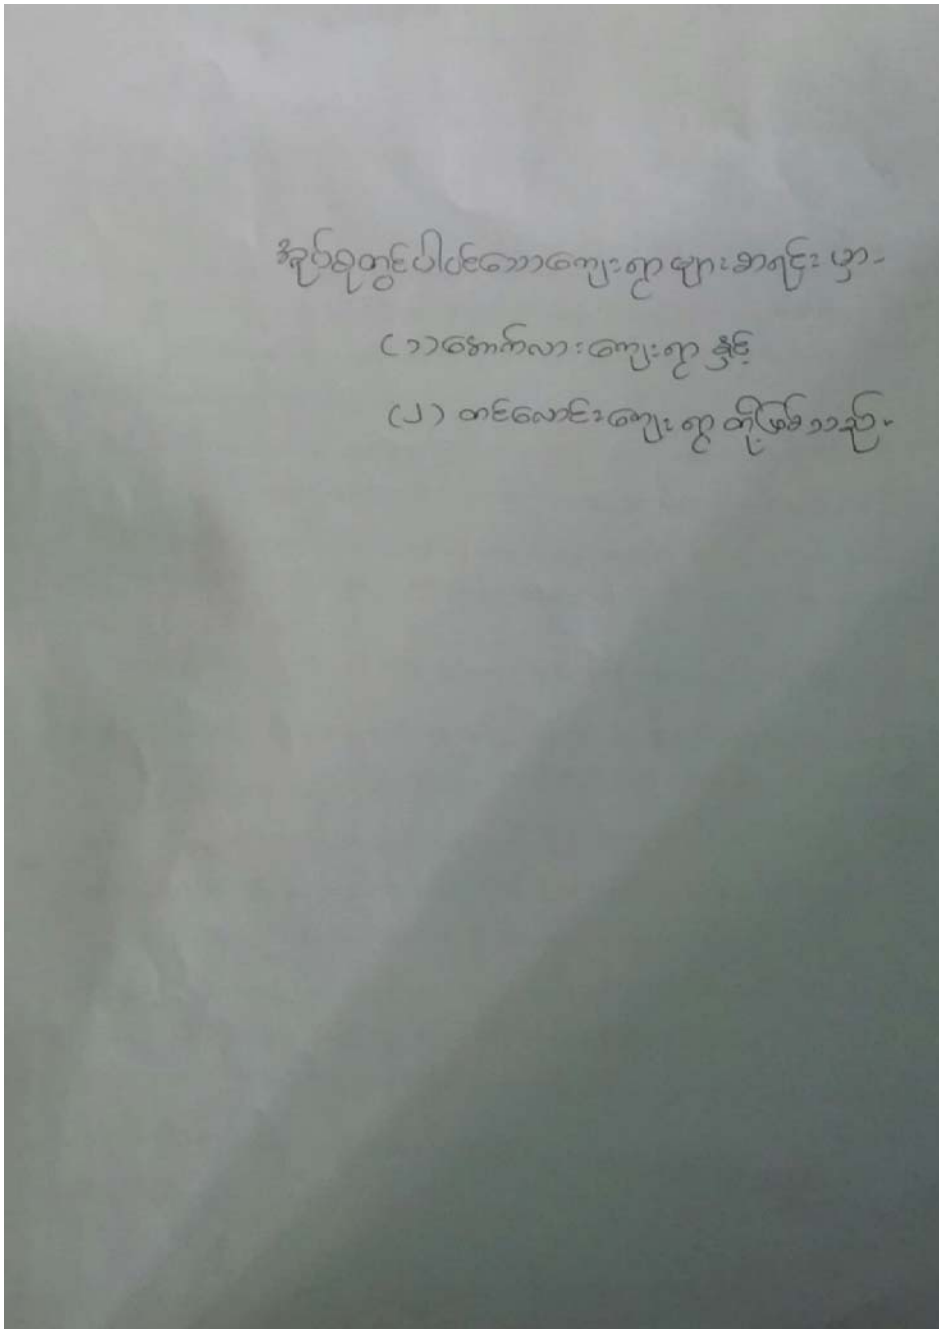 အုပ်စုတွင်ပါဝင်သောကျေးရွာများစာရင်းမှာ-
(၁)အောက်လားကျေးရွာ နှင့်
(၂) တင်လောင်းကျေးရွာ တို့ဖြစ်သည်။